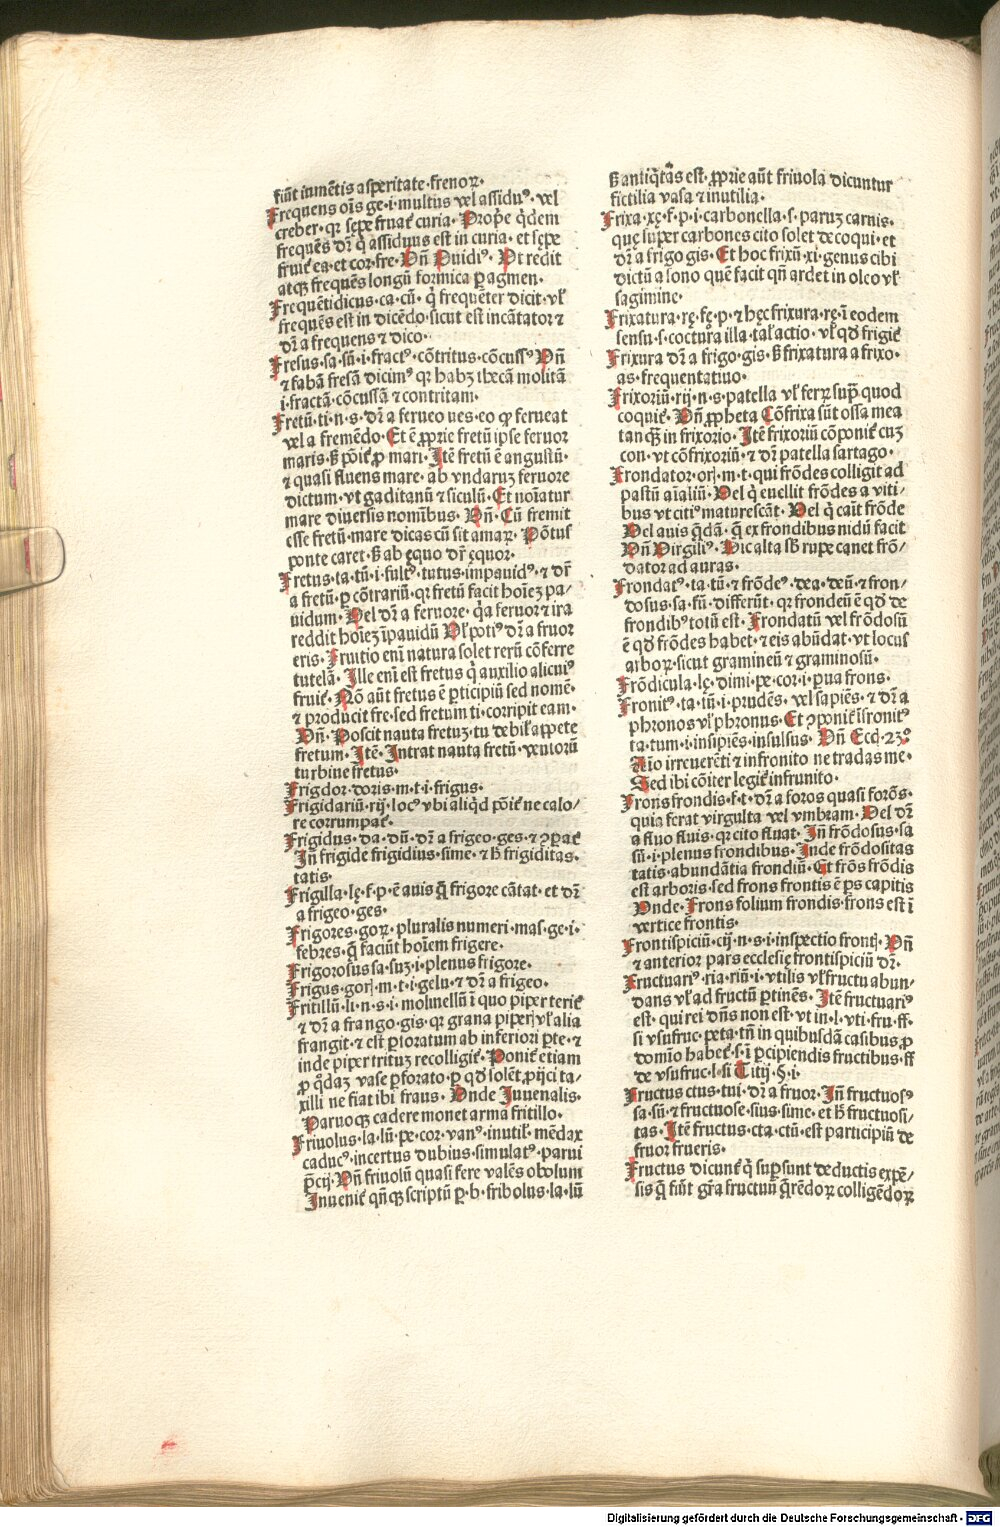 fiūt iumētis asperitate·frenoꝝ·
Frequens oīs ge·i·multus vel assiduꝰ·vel
creber·qꝛ sępe fruat̄ curia·Prop̄e q̇dem
frequēs dr̄ q̇ assiduus est in curia·et sępe
fruit̄ ea·et cor·fre·Vn̄ Ouidiꝰ·Vt redit
atqꝫ frequēs longū formica ꝑ agmen·
Frequētidicus·ca·cū·q̇ frequēter dicit·vl̓
frequēs est in dicēdo·sicut est incātator ⁊
dr̄ a frequens ⁊ dico·
Fresus·sa·sū·i·fractꝰ·cōtritus·cōcussꝰ Vn̄
⁊ fabā fresā dicimꝰ qꝛ habꝫ thecā molitā
i·fractā·cōcussā ⁊ contritam·
Fretū·ti·n·s·dr̄ a ferueo ues·eo ꝙ ferueat
vel a fremēdo·Et ē ꝓprie fretū ipse feruor
maris·ß pōit̄ ꝓ mari·Itē fretū ē angustū·
⁊ quasi fluens mare·ab vndaꝝ feruore
dictum·vt gaditanū ⁊ siculū·Et noīatur
mare diuersis nomībus·Vn̄·Cū fremit
esse fretū·mare dicas cū sit amaꝝ·Pōtus
ponte caret·ß ab ęquo dr̄ ęquor·
Fretus·ta·tū·i·fultꝰ·tutus·impauidꝰ·⁊ dr̄
a fretū·ꝑ cōtrariū·qꝛ fretū facit hoīeꝫ pa/
uidum·Vel dr̄ a feruore·q̇a feruor ⁊ ira
reddit hoīeꝫ īpauidū Vl̓ potiꝰ dr̄ a fruor
eris·Fruitio enī natura solet rerū cōferre
tutelā·Ille enī est fretus q̇ auxilio alicuiꝰ
fruit̄·Nō aūt fretus ē ꝑticipiū sed nomē·
⁊ producit fre·sed fretum ti·corripit eam·
Vn̄·Poscit nauta fretuꝫ·tu debil̓ appete
fretum·Itē·Intrat nauta fretū·ventorū
turbine fretus·
Frigdor·doris·m·t·i·frigus·
Frigidariū·rij·locꝰ vbi aliq̇d pōit̄ ne calo/
re corrumpat̄·
Frigidus·da·dū·dr̄ a frigeo·ges·⁊ ꝯpat̄
In̄ frigide frigidius·sime·⁊ h̄ frigiditas·
tatis·
Frigilla·lę·f·p·ē auis q̄ frigore cātat·et dr̄
a frigeo·ges·
Frigores·goꝝ·pluralis numeri·mas·ge·i·
febres·q̄ faciūt hoīem frigere·
Frigorosus sa·suꝫ·i·plenus frigore·
Frigus·gorꝭ·m·t·i·gelu·⁊ dr̄ a frigeo·
Fritillū·li·n·s·i·molinellū ī quo piper terit̄
⁊ dr̄ a frango·gis·qꝛ grana piperꝭ vl̓ alia
frangit·⁊ est ꝑforatum ab inferiori ꝑte·⁊
inde piper trituꝫ recolligit̄·Ponit̄ etiam
ꝓ q̇daꝫ vase ꝑforato·ꝑ qd̓ solēt ꝓijci ta/
xilli ne fiat ibi fraus·Vnde Juuenalis·
Paruoqꝫ cadere monet arma fritillo·
Friuolus·la·lū·pe·cor·vanꝰ·inutil̓·mēdax
caducꝰ·incertus dubius·simulatꝰ·parui
p̄cij·Vn̄ friuolū quasi fere valēs obolum
Inuenit̄ qn̄qꝫ scriptū ꝑ·b·fribolus·la·lū
ß antiq̇tas est·ꝓprie aūt friuola dicuntur
fictilia vasa ⁊ inutilia·
Frixa·xę·f·p·i·carbonella·s·paruꝫ carnis·
quę super carbones cito solet decoqui·et
dr̄ a frigo gis·Et hoc frixū·xi·genus cibi
dictū a sono que facit qn̄ ardet in oleo vl̓
sagimine·
Frixatura·rę·fę·p·⁊ hęc frixura·rę·ī eodem
sensu·s·coctura illa·tal̓ actio·vl̓ qd̓ frigit̄
Frixura dr̄ a frigo·gis·ß frixatura a frixo·
as·frequentatiuo·
Frixoriū·rij·n·s·patella vl̓ ferꝝ supͣ quod
coquit̄·Vn̄ ꝓpheta Cōfrixa sūt ossa mea
tanqͣꝫ in frixorio·Itē frixoriū cōponit̄ cuꝫ
con·vt cōfrixoriū·⁊ dr̄ patella sartago·
Frondator·orꝭ·m·t·qui frōdes colligit ad
pastū aīaliū·Vel q̇ euellit frōdes a viti/
bus vt citiꝰ maturescāt·Vel q̇ canit frōde
Vel auis q̇dā·q̄ ex frondibus nidū facit
Vn̄ Virgiliꝰ·Hic alta sb̓ rupe canet frō/
dator ad auras·
Frondatꝰ·ta·tū·⁊ frōdeꝰ·dea·deū·⁊ fron/
dosus·sa·sū·differūt·qꝛ frondeū ē qd̓ de
frondibꝰ totū est·Frondatū vel frōdosū
ē qd̓ frōdes habet·⁊ eis abūdat·vt locus
arboꝝ·sicut gramineū ⁊ graminosū·
Frōdicula·lę·dimi·pe·cor·i·parua frons·
Fronitꝰ·ta·tū·i·prudēs·vel sapiēs·⁊ dr̄ a
phronos vl̓ phronus·Et ꝯponit̄ īfronitꝰ
ta·tum·i·insipiēs·insulsus·Vn̄ Ecci·23·
Aīo irreuerēti ⁊ infronito ne tradas me·
Sed ibi cōiter legit̄ infrunito·
Frons frondis·f·t·dr̄ a foros quasi forōs·
quia ferat virgulta vel vmbram·Vel dr̄
a fluo fluis·qꝛ cito fluat·In̄ frōdosus·sa
sū·i·plenus frondibus·Inde frōdositas
tatis·abundātia frondiū·Et frōs frōdis
est arboris·sed frons frontis ē ꝑs capitis
Vnde·Frons folium frondis·frons est ī
vertice frontis·
Frontispiciū·cij·n·s·i·inspectio frontꝭ·Vn̄
⁊ anterior pars ecclesię frontispiciū dr̄·
Fructuariꝰ·ria·riū·i·vtilis vl̓ fructu abun/
dans vl̓ ad fructū ꝑtinēs·Itē fructuariꝰ
est·qui rei dn̄s non est·vt in·l·vti·fru·ff·
si vsufruc·peta·tn̄ in quibusdā casibus ꝓ
domīo habet̄·s·ī ꝑcipiendis fructibus·ff
de vsufruc·l·si Titij·§·i·
Fructus ctus·tui·dr̄ a fruor·In̄ fructuosꝰ
sa·sū·⁊ fructuose·sius·sime·et h̄ fructuosi/
tas·Itē fructus·cta·ctū·est participiū de
fruor frueris·
Fructus dicunt̄ q̇ suꝑsunt deductis expē/
sis q̄ fiūt gr̄a fructuū q̄rēdoꝝ colligēdoꝝ
Digitalisierung gefördert durch die Deutsche Forschungsgemeinschaft - DFG